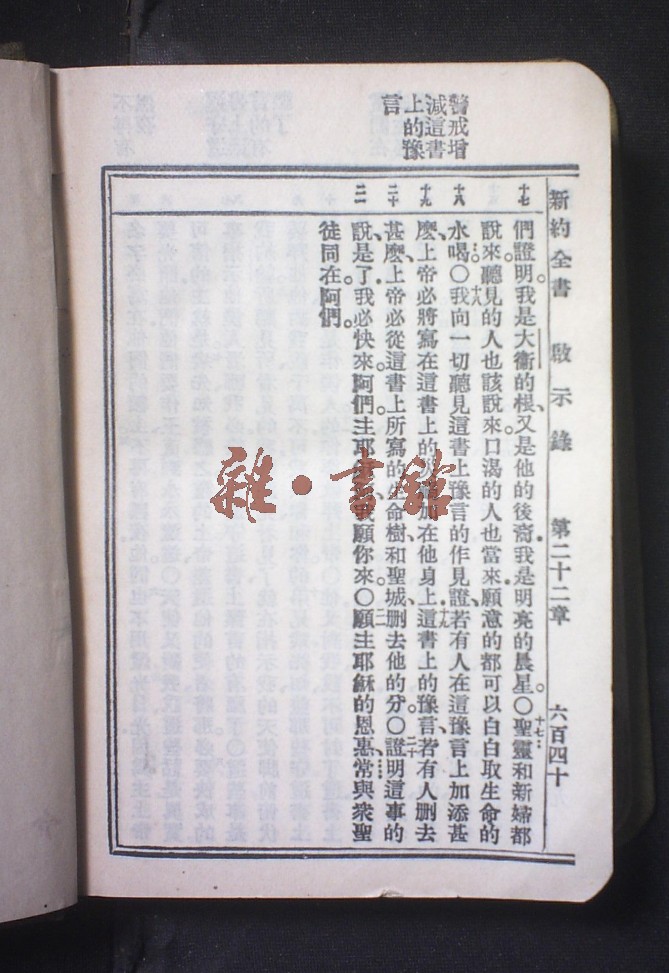 新約全書 啟示錄 第二十二章 六百四十
警戒增
減這書
上的豫
言
十七
十八
十九
二十
二一
們證明。我是大衛的根、又是他的後裔。我是明亮的晨星。○十七聖靈和新婦都
說來。聽見的人也該說來。口渴的人也當來。願意的都可以白白取生命的
水喝。○十八我向一切聽見這書上豫言的作見證、若有人在這豫言上加添甚
麼、上帝必將寫在這書上的災加在他身上。十九這書上的豫言、若有人删去
甚麼、上帝必從這書上所寫的生命樹和聖城、删去他的分。○二十證明這事的
說、是了。我必快來。阿們。主耶我願你來。○二一願主耶穌的恩惠、常與衆聖
徒同在。阿們。
雜·書館